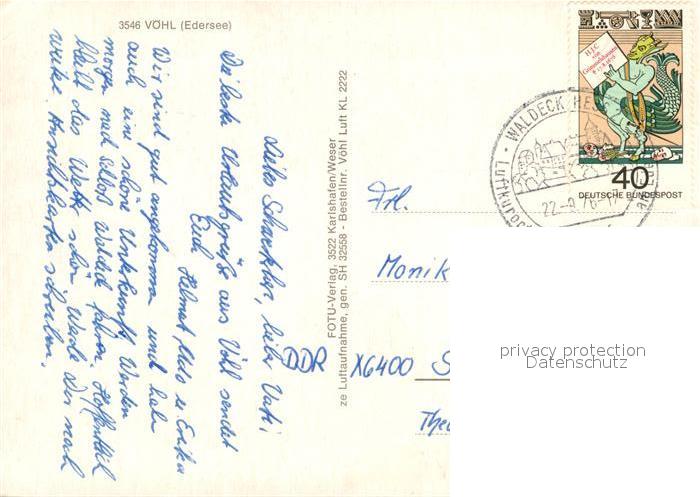 3546 VÖHL (Edersee)
Liebes Schwesterherz, lieber Vati
Die besten Urlaubsgrüße aus Vöhl sendet
Euch Helmut, Udo u. Erika
Wir sind gut angekommen und haben
auch eine schöne Unterkunft. Werden
morgen nach Schloß Waldeck fahren. Hoffentlich
bleibt das Wetter schön. Werde Dir noch
weitere Ansichtskarten schreiben.
FOTU-Verlag, 3522 Karlshafen/Weser
ze Luftaufnahme, gen. SH 32558 - Bestellnr. Vöhl Luft KL 2222
H.J.C.
von
Grimmelshausen
40
DEUTSCHE BUNDESPOST
WALDECK HE
LUFTKURORT
22.-9.76
Frl.
Monik
DDR X6400 S
The
privacy protection
Datenschutz